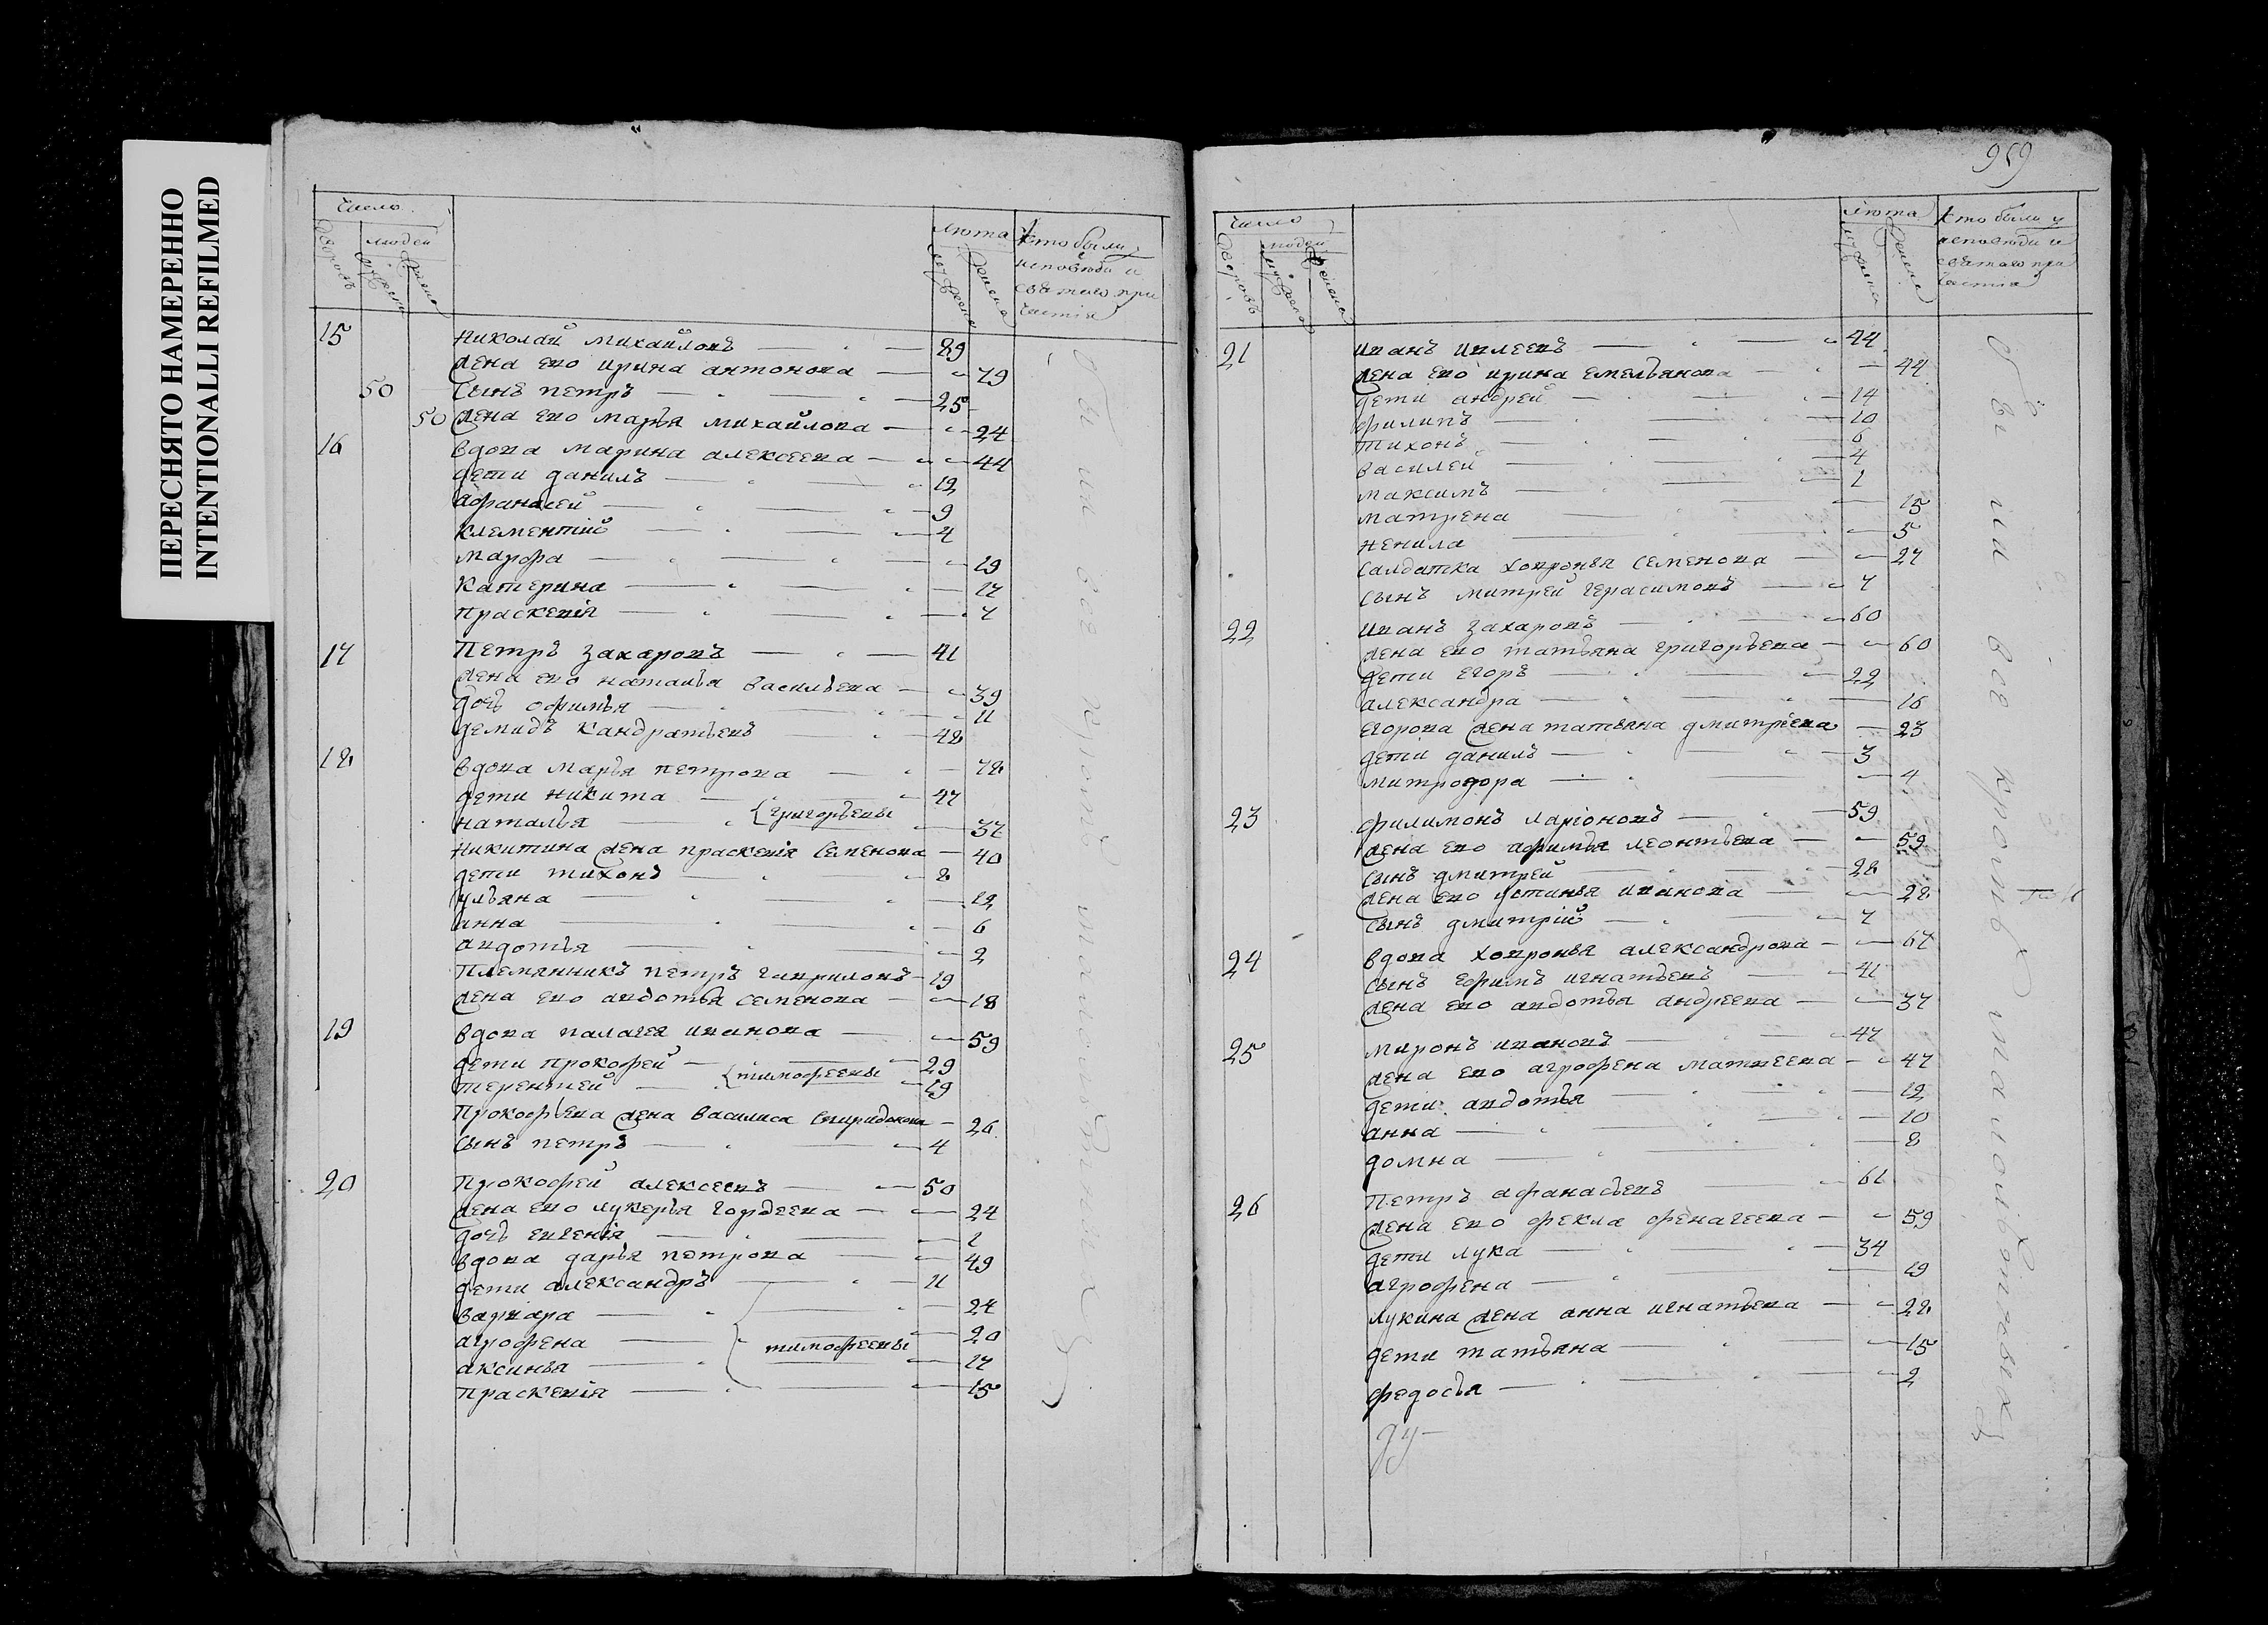 ПЕРЕСНЯТО НАМЕРЕННО
INTENTIONALLI REFILMED
число
дворовъ
людей
мужеска
женска
лѣта
мужеска
женска
кто были у
исповѣди и
святаго при
частія
15 николай михайловъ 89
жена ево ирина антонова 79
50 сынъ петръ 25
50 жена ево марья михайлова 24
16 вдова марина алексеева 44
дети данилъ 12
афанасей 9
клементий 4
марфа 19
катерина 17
праскевія 7
17 Петръ захаровъ 41
жена ево наталья васильева 39
дочь офимья 11
демидъ кандратьевъ 48
18 вдова марья петрова 78
дети никита 47
наталья григорьевы 37
никитина жена праскевія семенова 40
дети тихонъ 8
ульяна 12
анна 6
авдотья 2
племянникъ петръ гавриловъ 19
жена ево авдотья семенова 18
19 вдова палагея иванова 59
дети прокофей 29
терентей тимофеевы 19
Прокофьева жена василиса спиридонова 26
сынъ петръ 4
20 Прокофей алексеевъ 50
жена ево лукерья гордеева 24
дочь евгенія 1
вдова дарья петрова 49
дети александръ 11
варвара 24
агрофена 20
тимофеевы
аксинья 17
праскевія 15
959
число
дворовъ
людей
мужеска
женска
лѣта
мужеска
женска
кто были у
исповѣди и
святаго при
частія
21 иванъ ивлеевъ 44
жена ево ирина емельянова 44
дети андрей 14
филипъ 10
тихонъ 6
василей 4
максимъ 1
матрена 15
ненила 5
салдатка ховронья семенова 27
сынъ митрей герасимовъ 7
22 иванъ захаровъ 60
жена ево татьяна григорьева 60
дети егоръ 22
александра 16
егорова жена татьяна дмитреева 23
дети данилъ 3
митродора 4
23 филимонъ ларіоновъ 59
жена ево афимья леонтьева 59
сынъ дмитрей 28
жена ево устинья иванова 28
сынъ дмитрій 7
24 вдова ховронья александрова 67
сынъ ефимъ игнатьевъ 41
жена ево авдотья андреева 37
25 миронъ ивановъ 47
жена ево агрофена матвеева 47
дети авдотья 12
анна 10
домна 8
26 Петръ афанасьевъ 61
жена ево фекла фенагеева 59
дети лука 34
агрофена 19
лукина жена анна игнатьева 28
дети татьяна 15
федосья 2